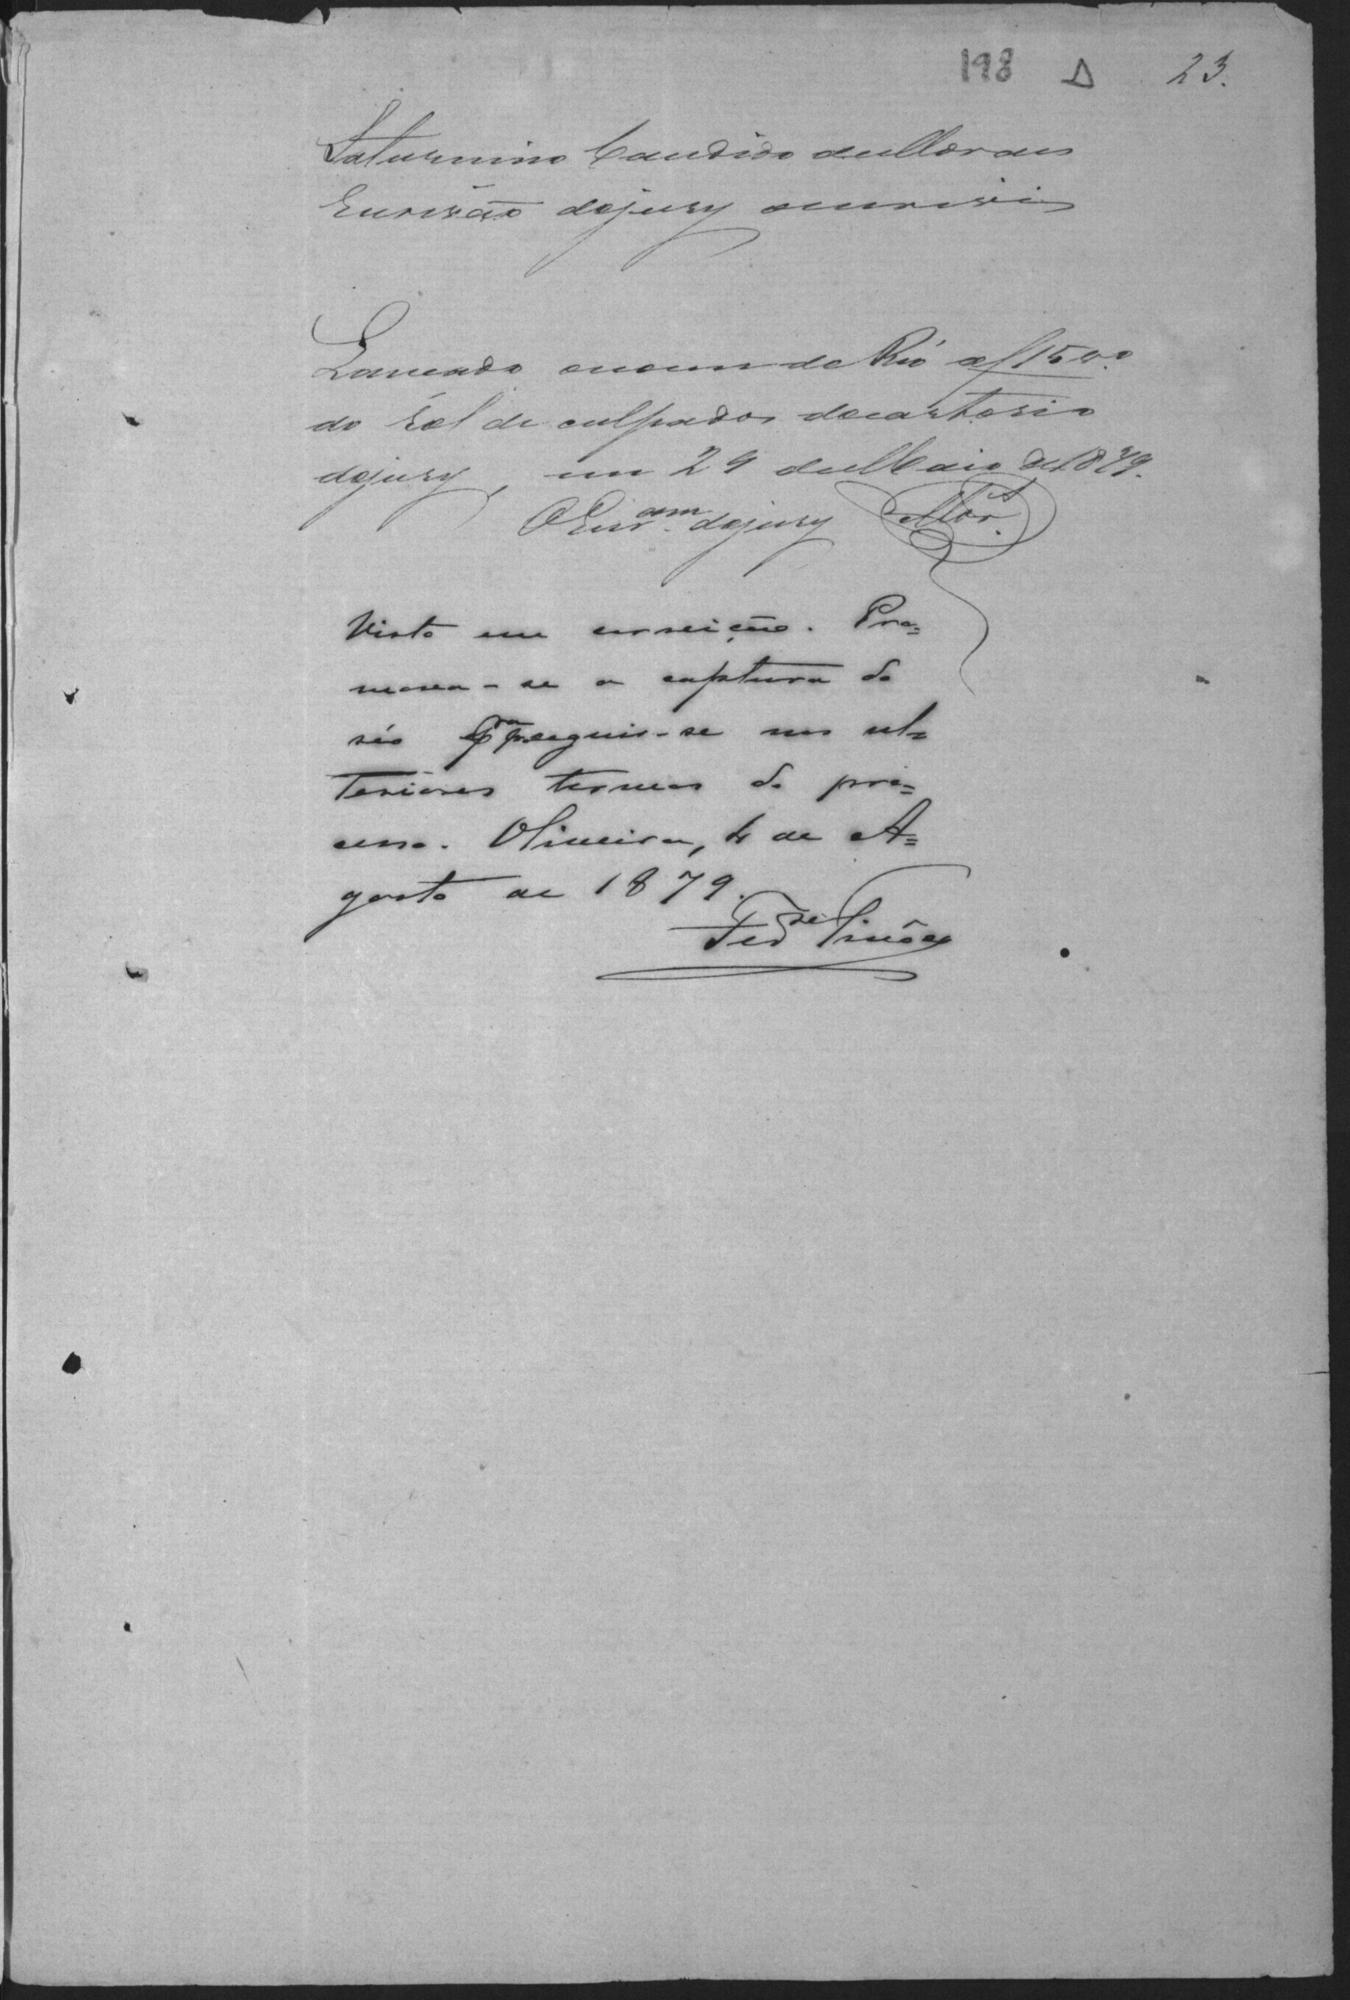 198 Δ 23.
Saturnino Candido de Moraes
Escrivão do jury o escrivi
Lançado o nome do Réo a f 15 vo.
do rol de culpados do cartorio
do jury, em 29 de Maio de 1879.
O Escr.am do jury Mor.s
Visto em correição. Pro=
mova-se a captura do
réo prosseguir-se nos ul=
teriores termos do pro=
cesso. Oliveira, 4 de A=
gosto de 1879.